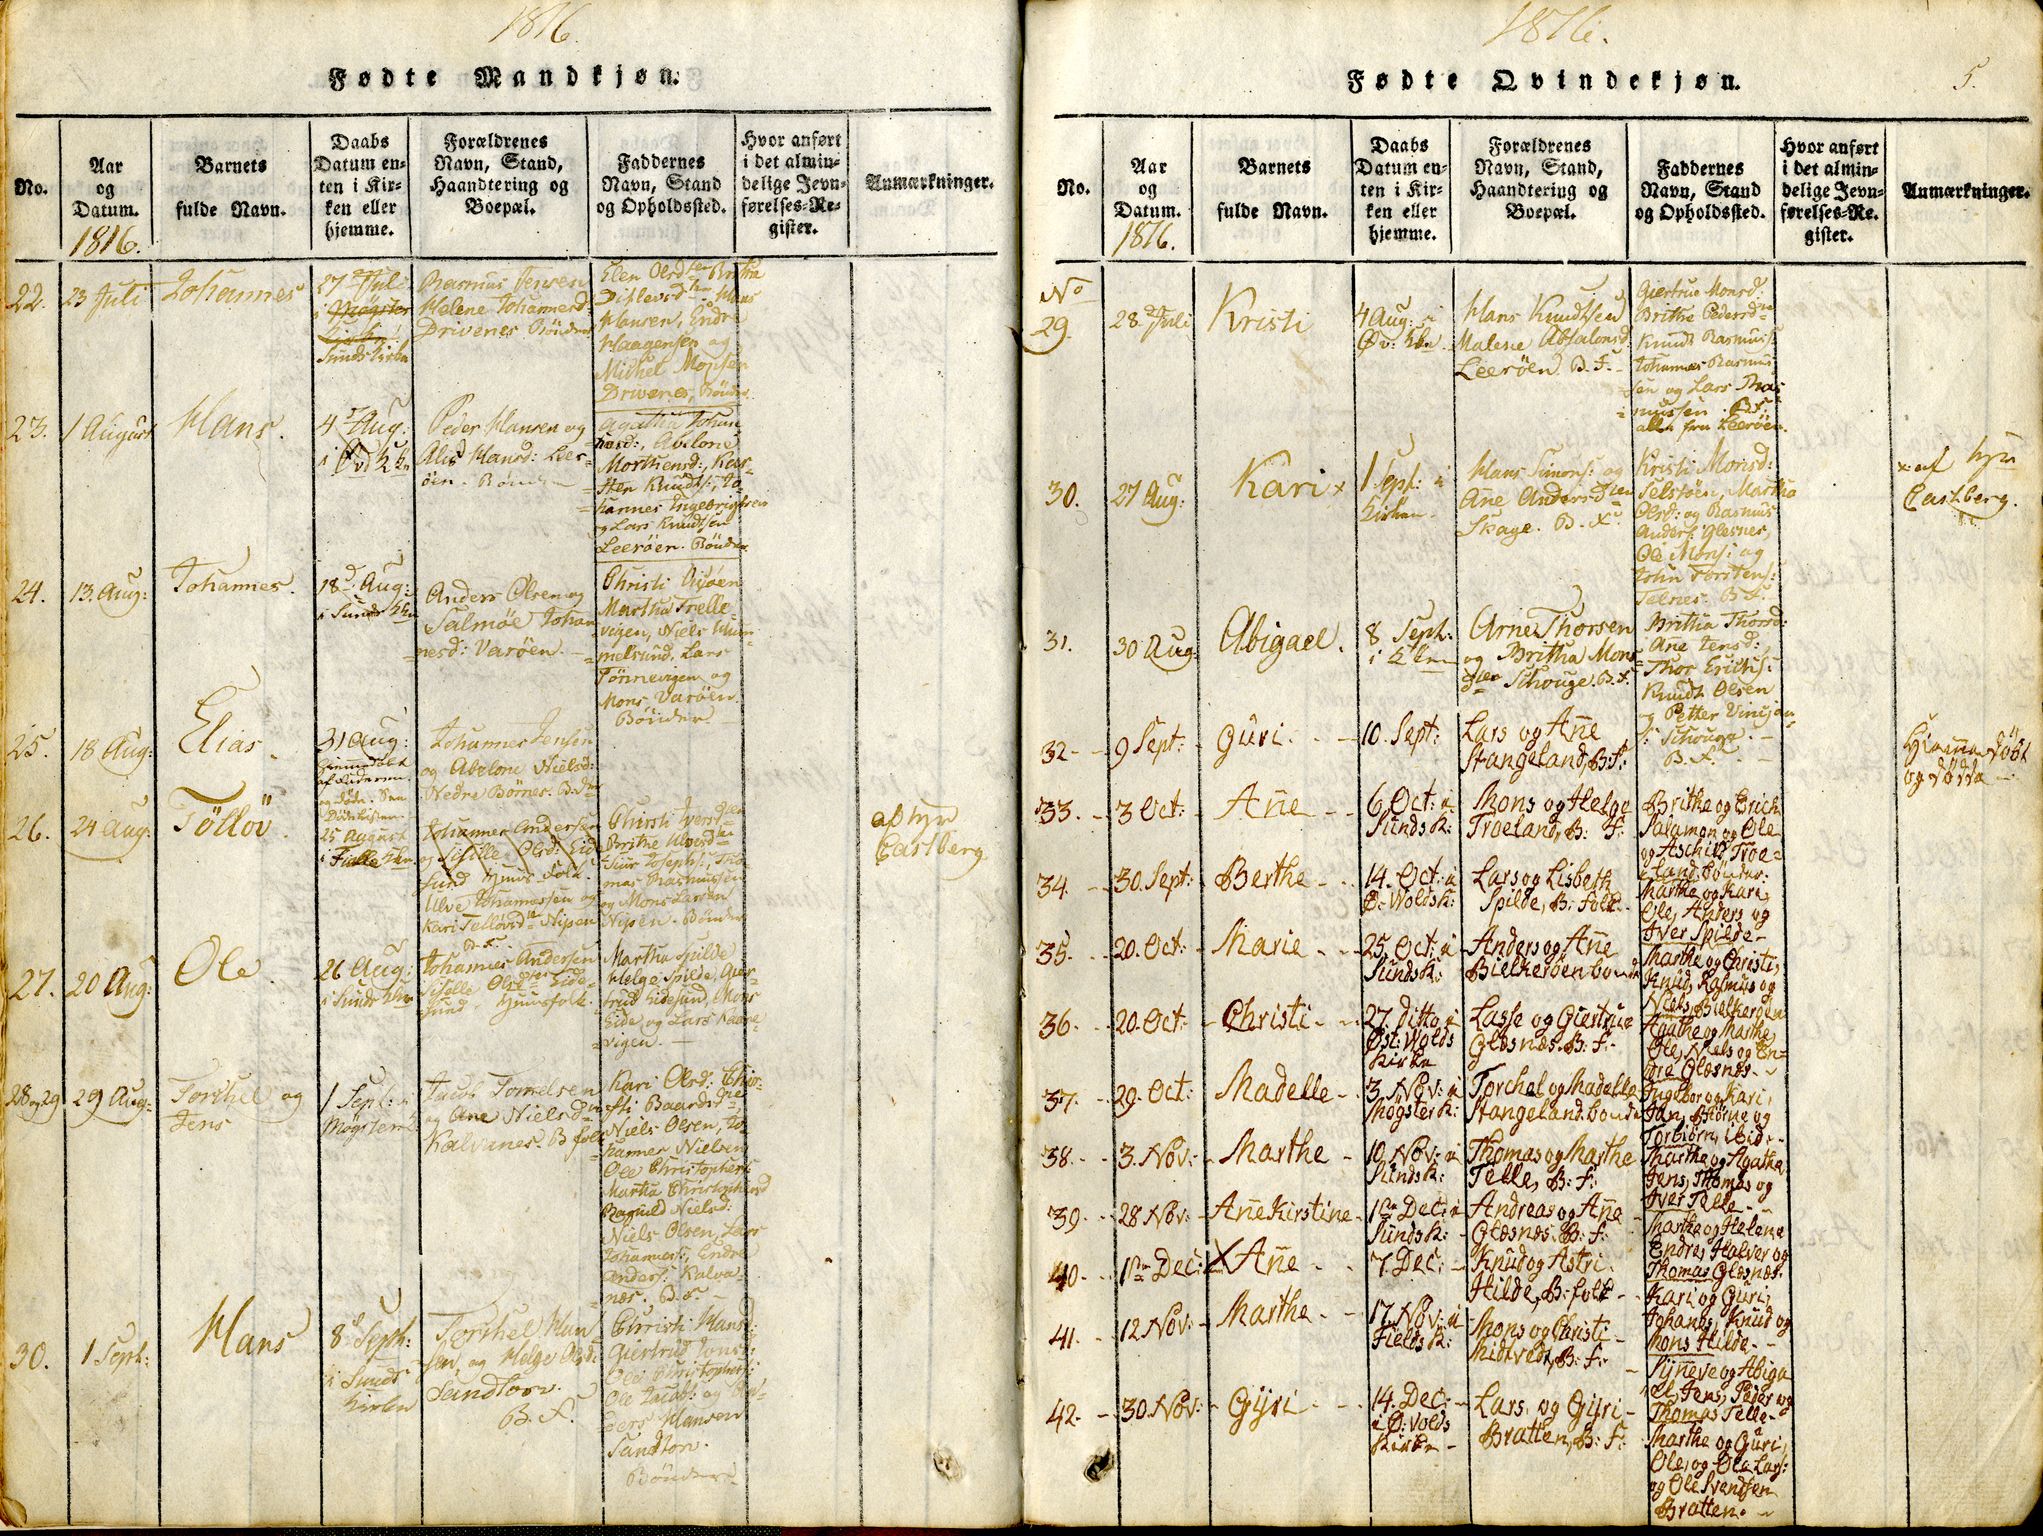 1816.
Fødte Mandkjøn:
No.
Aar
og
Datum.
1816.
Barnets
fulde Navn.
Daabs
Datum en-
ten i Kir-
ken eller
hjemme.
Forældrenes
Navn, Stand,
Haandtering og
Boepæl.
Faddernes
Navn, Stand
og Opholdssted.
Hvor anført
i det almin-
delige Jevn-
førelses-Re-
gister.
Anmærkninger.
22. 23 Juli Johannes
27 Juli
i Møgster
Kirke
Sunds Kirke
Rasmus Jensen
Helene Johannesd:
Drivenes Bönder
Elen Olsd Britha
Ditlevsd Hans
Hansen, Endre
Haagensen og
Michel Monsen
Drivenes, Bönder
23. 1 August Hans.
4 Aug:
Peder Hansen og
Alis Hansd: Leer-
öen. Bönder
Agatha Johan-
nesd:, Abelone
Morthensd:, Kar-
sten Knudts:, Jo-
hannes Ingebrigtsen
og Lars Knudtsen
Leeröen. Bönder
24. 13. Aug: Johannes.
18 Aug:
i Sunds Kken
Anders Olsen og
Salmöe Johan-
nesd: Varöen.
Christi
Martha Trelle-
vigen, Niels Hum-
melsund, Lars
Tönnevigen og
Mons Varöen
Bönder
25. 18 Aug: Elias.
31 Aug:
Johannes Jensen
og Abelone Nielsd:
Nedre Börnes.
26. 24 Aug: Töllöv.
25 August
i Fielle Kken
Johannes Andersen
og Sisille Olsd: Eide-
sund Huus-Folk.
Ulve Johannessen og
Kari Tellevsd Nipen
B. F.
Christi Iversd
Brithe Ulvesd
Siur Josephs:, Tho-
mas Rasmussen
og Mons Larsen
Nipen. Bönder
af hr
Castberg
27. 20 Aug: Ole.
26 Aug:
i Sunds Kken
Johannes Andersen
Sisille Olsd Eide-
sund. Huusfolk.
Martha Spilde
Helge Spilde, Gier-
trud Eidesund, Mons
Eide og Lars Kaare-
vigen.
28 og 29 29 Aug: Torchel og
Jens
1 Sept: i
Møgster K
Jacob Tommesen
og Ane Nielsd
Kalvanes. B folk
Kari Olsd: Chri-
sti Baardsd
Niels Olsen, Jo-
hannes Nielsen
Ole Christophers:
Martha Christophersd
Ragnild Nielsd:
Niels Olsen, Lars
Johannes:, Endre
Anders: Kalva-
næs. B. F.
30. 1 Sept: Hans
8 Sept:
i Sunds
Kirken
Torchel Han-
sen og Helge Olsd:
Sandtorv.
B. F.
Christi Hansd:
Giertrud Jonsd:
Ole Christophers:
Ole Jacobs: og An-
ders Hansen
Sandtorv.
Bönder
1816.
5.
Fødte Qvindekjøn.
No.
Aar
og
Datum.
1816.
Barnets
fulde Navn.
Daabs
Datum en-
ten i Kir-
ken eller
hjemme.
Forældrenes
Navn, Stand,
Haandtering og
Boepæl.
Faddernes
Navn, Stand
og Opholdssted.
Hvor anført
i det almin-
delige Jevn-
førelses-Re-
gister.
Anmærkninger.
No
29. 28. Juli Kristi
4 Aug: i
Øv: Kken
Hans Knudtsen
Malene Absalonsd:
Leeröen. B. F.
Giertrue Monsd:
Brithe Pedersd
Knudt Rasmus:
Johannes Rasmus-
sen og Lars Ras-
mussen B. F.
alle fra Leeröen.
30. 27 Aug: Kari x
1 Sept: i
Kirken.
Hans Simons: og
Ane Anders Dter
Skage. B. F.
Kristi Monsd:
Selstöen, Martha
Olsd: og Rasmus
Anders: Glesnes,
Ole Mons: og
John Torstens:
Telnes. B F.
x af hr
Castberg.
31. 30 Aug: Abigael.
8 Sept:
i Kken
Arne Thorsen
og Britha Mons
Dter Schouge. B. F.
Britha Thorsd:
Ane Jensd:,
Thor Erichs:
Knudt Olsen
og Petter Vinsjan
Schouge.
B. F.
32. 9 Sept: Guri.
10. Sept:
Lars og Ane
Stangeland, B: F:
Hjemmedöbt
og dödde
33. 3 Oct: Ane
6. Oct: i
Sunds K:
Mons og Helge
Troeland, B: F:
Brithe og Erich
Salamon og Ole
og Aschild Troe-
land, bönder.
34. 30. Sept: Berthe
14. Oct: i
Ø. Wolds K:
Lars og Lisbeth
Spilde, B: folk.
Marthe og Kari,
Ole, Anders og
Iver Spilde
35. 20. Oct: Marie
25. Oct: i
Sunds K:
Anders og Ane
Bielkeröen bönde
Marthe og Christi,
Knud, Rasmus og
Niels, Bielkeröen
36. 20. Oct: Christi
27. ditto i
Øst: Wolds
Kirke
Lasse og Giertrue
Glæsnæs. B: F:
Agathe og Marthe,
Ole, Niels og En-
dre Glæsnæs.
37. 29. Oct: Madelle
3. Nov: i
Møgster K:
Torchel og Madelle
Stangeland. bönde
Ingebor og Kari,
Jan, Biörne og
Torbiörn, ibid.
38. 3. Nov: Marthe
10. Nov: i
Sunds K:
Thomas og Marthe
Telle, B: F:
Marthe og Agatha,
Jens, Thomas og
Iver Telle
39. 28 Nov: Ane Kirstine
1ste Dec: i
Sunds K:
Andreas og Ane
Glæsnæs. B: F:
Marthe og Helene
Endre, Halver og
Thomas Glæsnæs.
40. 1ste Dec: x Ane
7. Dec:
Knud og Astri
Hilde, B: folk
Kari og Guri,
Johanes, Knud og
Mons Hilde.
41. 12 Nov: Marthe
17. Nov: i
Fields K:
Mons og Christi
Midtvedt, B: F:
Synneve og Abiga-
el, Jens, Peder og
Thomas Telle
42. 30. Nov: Gyri
14. Dec:
i Ø: Volds
Kirke
Lars, og Gyri
Bratten, B: F:
Marthe og Guri,
Ole, og Ole Lars:
og Ole Svendsen
Bratten.